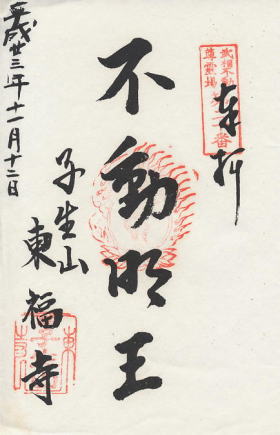 奉拝
武相不動
尊霊場
番
不動明王
子生山
東福寺
平成廿三年十一月十二日